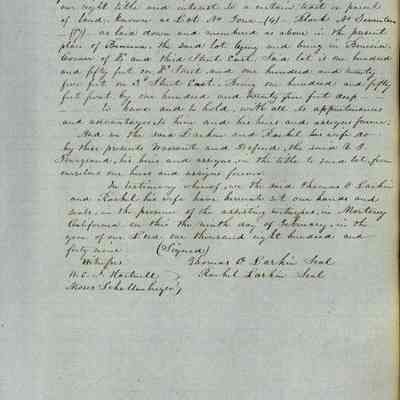 our right title and interest to a certain tract or parcel
of land; known as Lot No four –(4)– Block No Seventeen
–(17)– as laid down and numbered as above in the present
place of Benicia. the said lot lying and being in Benicia.
Corner of D, and third Street East. Said lot is one hundred
and fifty feet on D. Street. and one hundred and twenty
five feet on 3d Street East. Being one hundred and fifty
feet front by one hundred and twenty five feet deep.
To have and to hold, with all its appurtenances
and advantages to him and his heirs and assigns forever.
And we the said Larkin and Rachel his wife do
by these presents Warrant and Defend, the said
his heirs and assigns, in the title to said lot, from
ourselves our heirs and assigns forever.
In testimony whereof, we the said Thomas O Larkin
and Rachel his wife have hereunto set our hands and
seals, in the presence of the assisting witnesses, in Monterey
California on this the ninth day of February, in the
year of our Lord one thousand eight hundred and
forty nine (Signed)
Witness Thomas O Larkin Seal
W. E. P. Hartnell } Rachel Larkin Seal
Moses Schallenberger